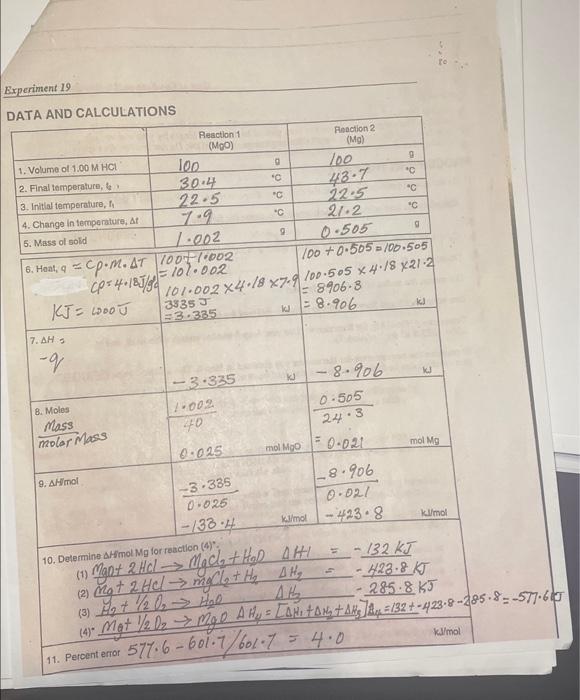 Experiment 19
DATA AND CALCULATIONS
Reaction 1 (MgO)
Reaction 2 (Mg)
1. Volume of 1.00 M HCl 100 g 100 g
2. Final temperature, t₂ 30.4 °C 43.7 °C
3. Initial temperature, t₁ 22.5 °C 22.5 °C
4. Change in temperature, Δt 7.9 °C 21.2 °C
5. Mass of solid 1.002 g 0.505 g
6. Heat, q = Cp.m.ΔT 100+1.002 100+0.505=100.505
Cp=4.18J/g°C =101.002 100.505 x 4.18 x 21.2
101.002 x 4.18 x 7.9 = 8906.8
KJ = 1000J 3335 J
=3.335 kJ = 8.906 kJ
7. ΔH =
-q
-3.335 kJ -8.906 kJ
8. Moles 1.002 0.505
Mass 40 24.3
molar Mass
0.025 mol MgO = 0.021 mol Mg
9. ΔH/mol -3.335 -8.906
0.025 0.021
-133.4 kJ/mol -423.8 kJ/mol
10. Determine ΔH/mol Mg for reaction (4)*.
(1) MgO + 2 HCl → MgCl₂ + H₂O ΔH1 = -132 KJ
(2) Mg + 2 HCl → MgCl₂ + H₂ ΔH₂ = -423.8 KJ
(3) H₂ + ½ O₂ → H₂O ΔH₃ -285.8 KJ
(4)* Mg + ½ O₂ → MgO ΔH₄ = [ΔH₁ + ΔH₂ + ΔH₃] =132+-423.8-285.8=-577.6KJ
kJ/mol
11. Percent error 577.6-601.7/601.7 = 4.0